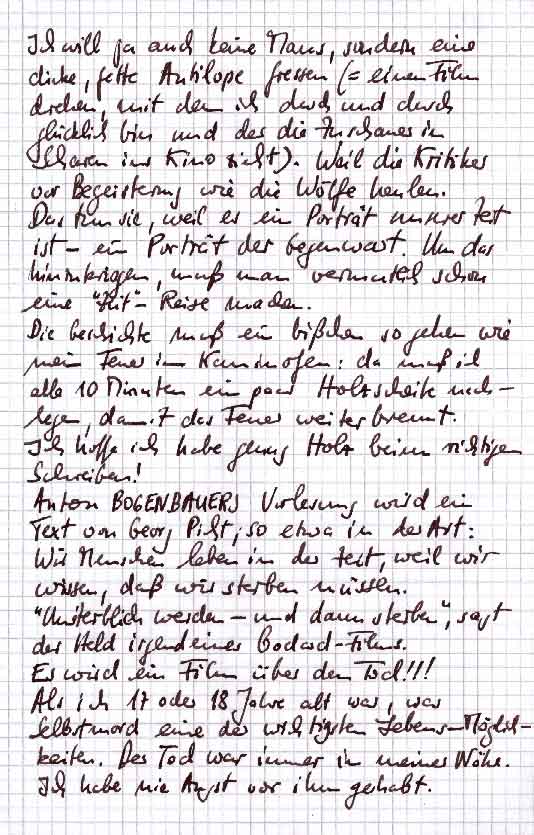 Ich will ja auch keine Maus, sondern eine
dicke, fette Antilope fressen (= einen Film
drehen, mit dem ich durch und durch
glücklich bin und der die Zuschauer in
Scharen ins Kino zieht). Weil die Kritiker
vor Begeisterung wie die Wölfe heulen.
Das tun sie, weil es ein Porträt unserer Zeit
ist – ein Porträt der Gegenwart. Um das
hinzukriegen, muß man vermutlich schon
eine "Zeit"-Reise machen.
Die Geschichte muß ein bißchen so gehen wie
mein Feuer im Kaminofen: da muß ich
alle 10 Minuten ein paar Holzscheite nach-
legen, damit das Feuer weiter brennt.
Ich hoffe ich habe genug Holz beim richtigen
Schreiben!
Anton BOGENBAUERS Vorlesung wird ein
Text von Georg Picht, so etwa in der Art:
Wir Menschen leben in der Zeit, weil wir
wissen, daß wir sterben müssen.
"Unsterblich werden – und dann sterben", sagt
der Held irgendeines Godard-Films.
Es wird ein Film über den Tod!!!
Als ich 17 oder 18 Jahre alt war, war
Selbstmord eine der wichtigsten Lebens-Möglich-
keiten. Der Tod war immer in meiner Nähe.
Ich habe nie Angst vor ihm gehabt.